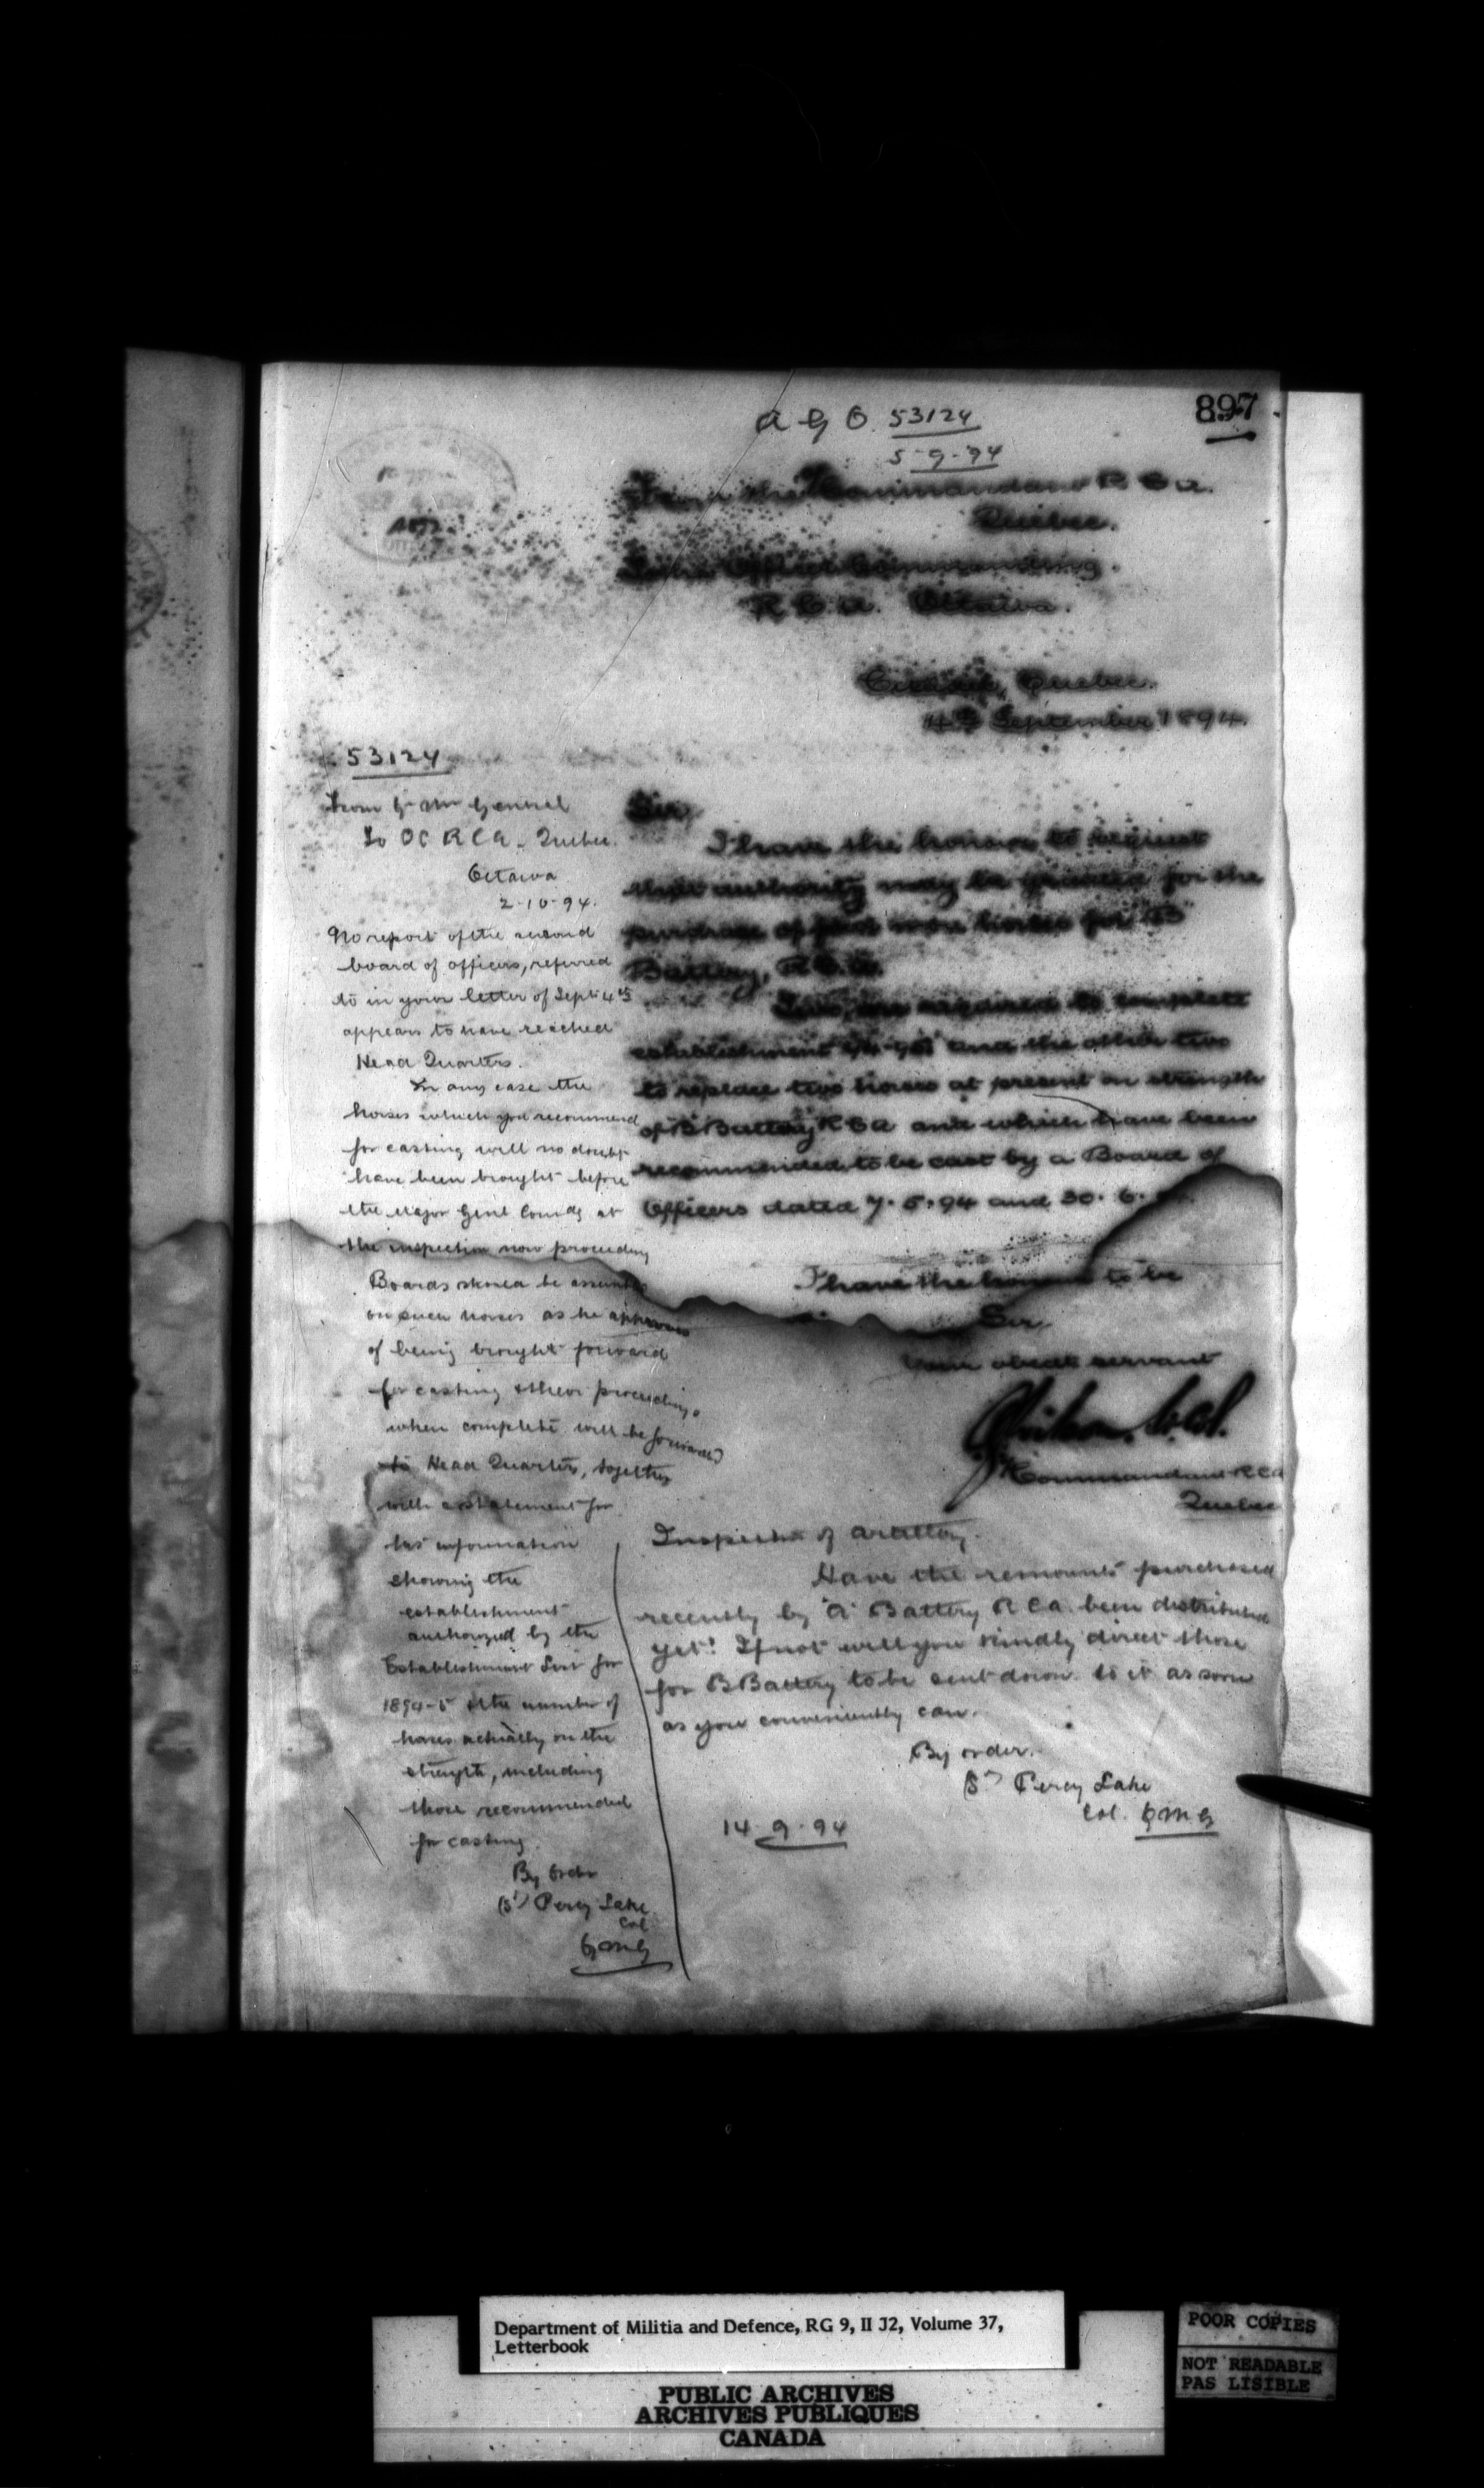 897
A G O. 53124
5-9-94
From the Commandant R C A.
Quebec.
To the Officer Commanding.
R C A. Ottawa.
Citadel, Quebec.
4th September 1894.
Sir,
I have the honour to request
that authority may be granted for the
purchase of four more horses for "B"
Battery, R.C.A.
Two are required to complete
establishment 94-95 and the other two
to replace two horses at present on strength
of "B" Battery R C A and which have been
recommended to be cast by a Board of
Officers dated 7. 5. 94 and 30. 6.
I have the honour to be
Sir,
Your obedt servant
Commandant R C A
Quebec
53124
From Q Mr General
To OC R C A. Quebec.
Ottawa
2-10-94.
No report of the second
board of officers, referred
to in your letter of Sept 4th
appears to have reached
Head Quarters.
In any case the
horses which you recommend
for casting will no doubt
have been brought before
the Major Genl Comdg at
the inspection now proceeding
Boards should be assembled
on such horses as he approves
of being brought forward
for casting & their proceedings
when complete will be forwarded
to Head Quarters, together
with a statement for
his information
showing the
establishment
authorized by the
Establishment List for
1894-5 & the number of
horses actually on the
strength, including
those recommended
for casting.
By Order
(Sd) Percy Lake
Col
QMG
Inspector of Artillery.
Have the remounts purchased
recently by "A" Battery R C A. been distributed
yet? If not will you kindly direct those
for B Battery to be sent down to it as soon
as you conveniently can.
By order.
(Sd) Percy Lake
Col. QMG
14-9-94
Department of Militia and Defence, RG 9, II J2, Volume 37,
Letterbook
PUBLIC ARCHIVES
ARCHIVES PUBLIQUES
CANADA
POOR COPIES
NOT READABLE
PAS LISIBLE